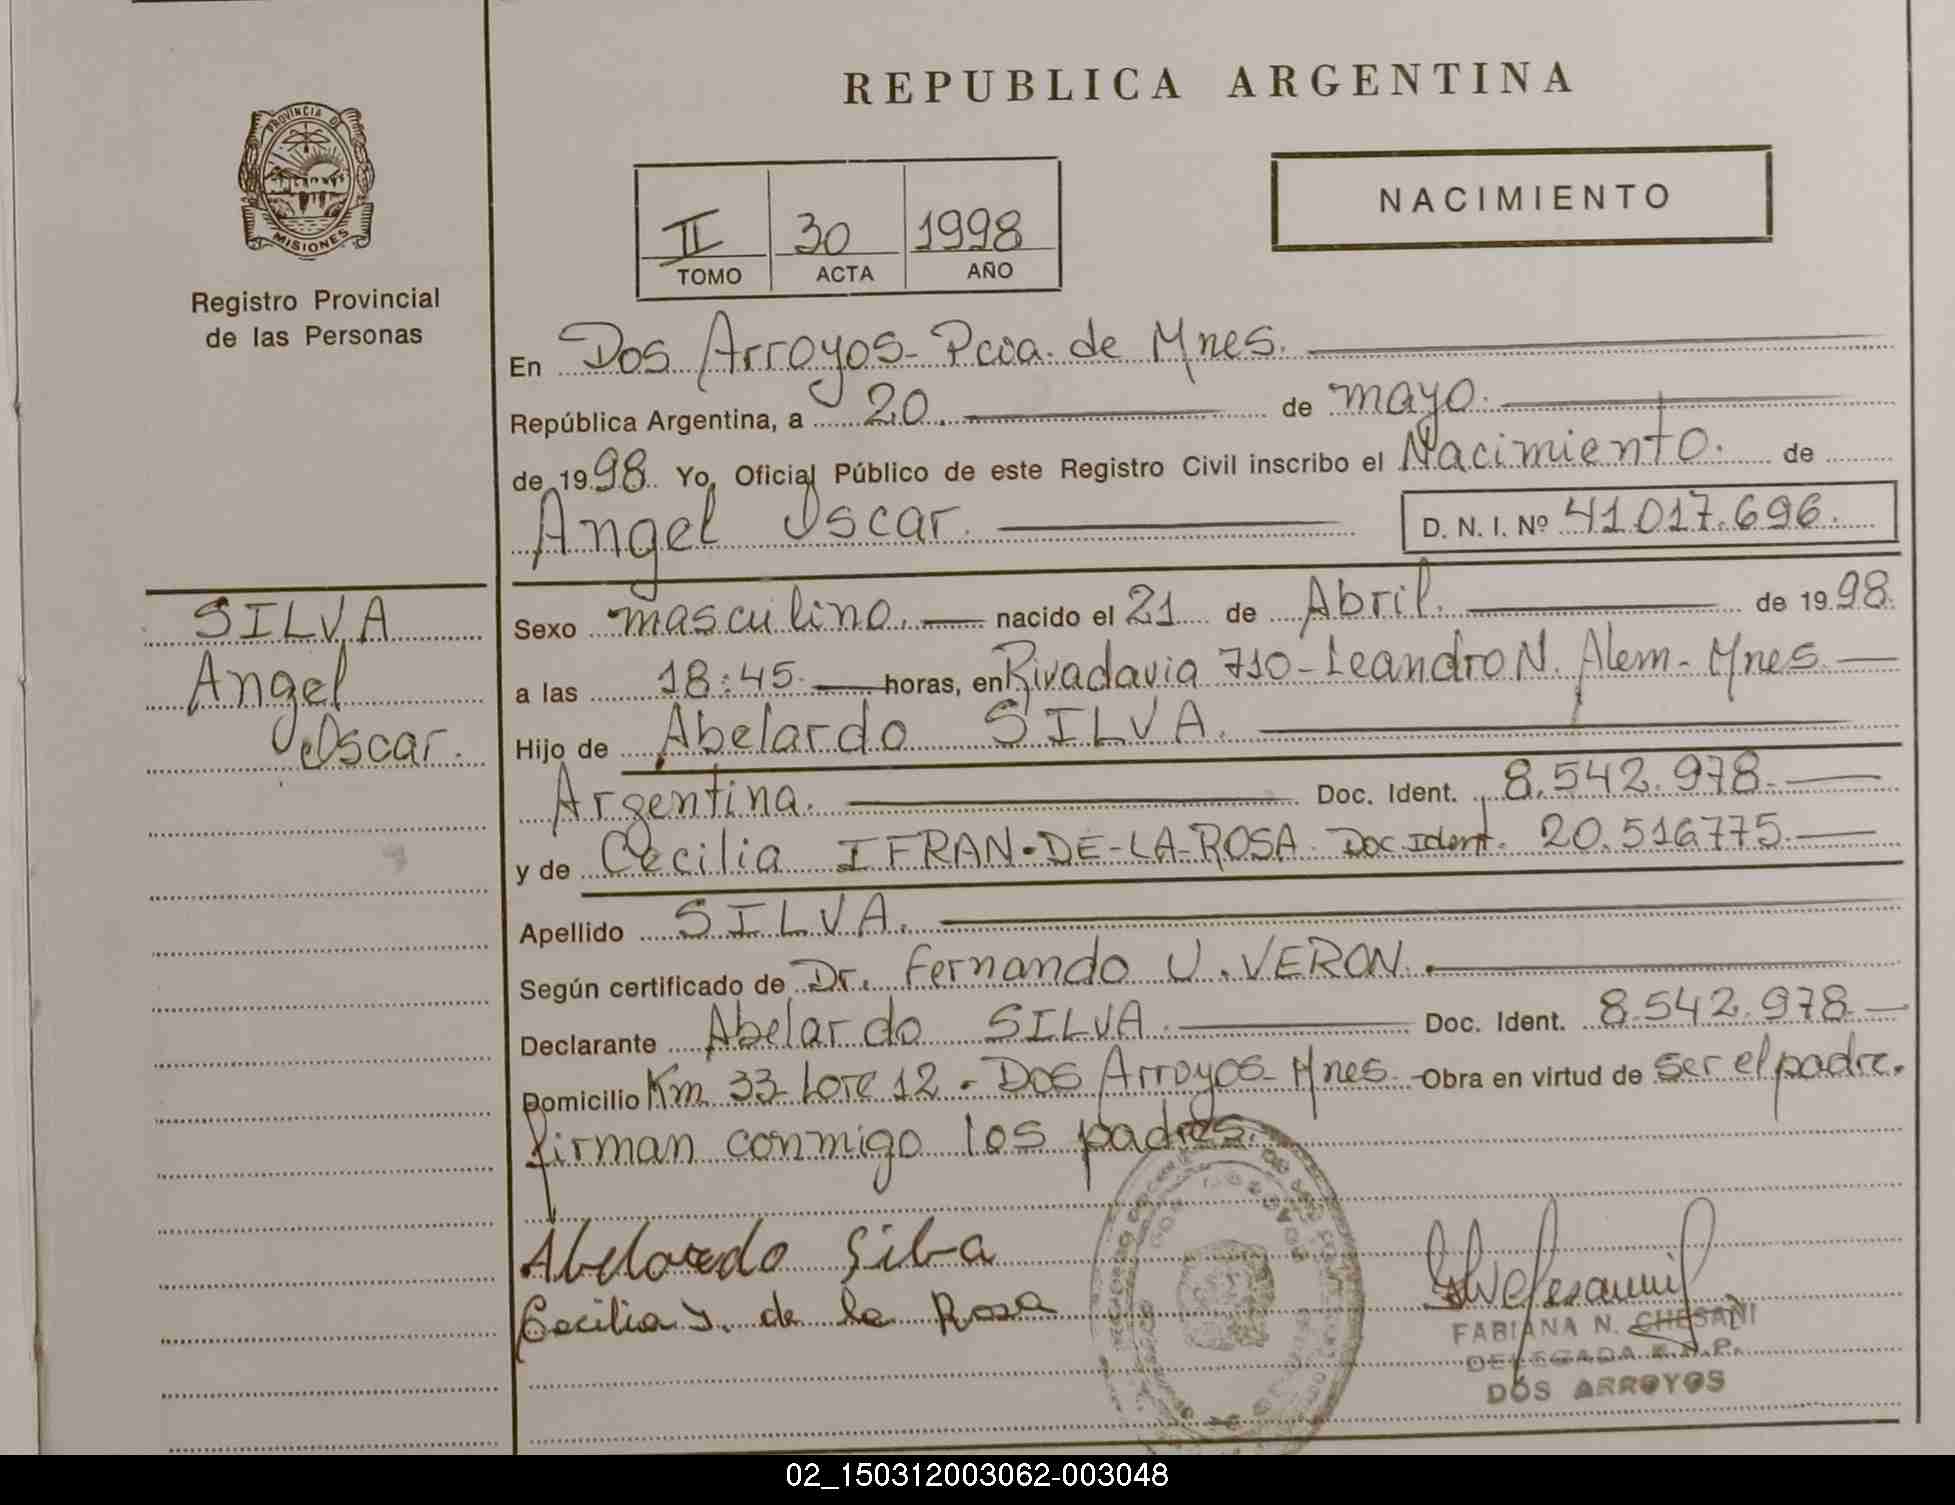 REPUBLICA ARGENTINA
PROVINCIA DE
MISIONES
Registro Provincial
de las Personas
II 30 1998
TOMO ACTA AÑO
NACIMIENTO
En Dos Arroyos - Pcia. de Mnes.
República Argentina, a 20. de mayo.
de 1998. Yo, Oficial Público de este Registro Civil inscribo el Nacimiento. de
Angel Oscar.
D. N. I. Nº 41.017.696.
SILVA
Angel
Oscar.
Sexo masculino. nacido el 21 de Abril. de 1998.
a las 18:45. horas, en Rivadavia 710 - Leandro N. Alem - Mnes.
Hijo de Abelardo SILVA.
Argentina. Doc. Ident. 8.542.978.
y de Cecilia IFRAN-DE-LA-ROSA. Doc Ident. 20.516775.
Apellido SILVA.
Según certificado de Dr. Fernando U. VERON.
Declarante Abelardo SILVA. Doc. Ident. 8.542.978
Domicilio Km 33 - Lote 12 - Dos Arroyos - Mnes. Obra en virtud de ser el padre.
firman conmigo los padres.
Abelardo Silva
Cecilia I. de la Rosa
FABIANA N. CHESANI
DELEGADA R.N.P.
DOS ARROYOS
02_150312003062-003048